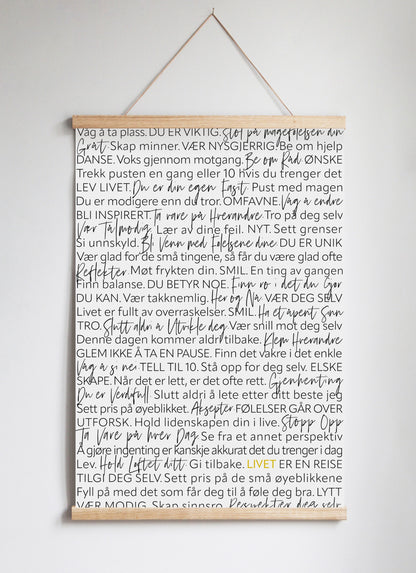 Våg å ta plass. DU ER VIKTIG. Stol på magefølelsen din
Gråt. Skap minner. VÆR NYSGJERRIG. Be om hjelp
DANSE. Voks gjennom motgang. Be om Råd ØNSKE
Trekk pusten en gang eller 10 hvis du trenger det
LEV LIVET. Du er din egen Fasit. Pust med magen
Du er modigere enn du tror. OMFAVNE. Våg å endre
BLI INSPIRERT. Ta vare på Hverandre. Tro på deg selv
Vær Tålmodig. Lær av dine feil. NYT. Sett grenser
Si unnskyld. Bli Venn med Følelsene dine. DU ER UNIK
Vær glad for de små tingene, så får du være glad ofte
Reflekter. Møt frykten din. SMIL. En ting av gangen
Finn balanse. DU BETYR NOE. Finn ro i det du Gjør
DU KAN. Vær takknemlig. Her og Nå VÆR DEG SELV
Livet er fullt av overraskelser. SMIL. Ha et åpent Sinn
TRO. Slutt aldri å Utvikle deg. Vær snill mot deg selv
Denne dagen kommer aldri tilbake. Klem Hverandre
GLEM IKKE Å TA EN PAUSE. Finn det vakre i det enkle
Våg å si nei TELL TIL 10. Stå opp for deg selv. ELSKE
SKAPE. Når det er lett, er det ofte rett. Gjenhenting
Du er Verdifull. Slutt aldri å lete etter ditt beste jeg
Sett pris på øyeblikket. Aksepter FØLELSER GÅR OVER
UTFORSK. Hold lidenskapen din i live. Stopp Opp
Ta Vare på hver Dag Se fra et annet perspektiv
Å gjøre ingenting er kanskje akkurat det du trenger i dag
Lev. Hold Løftet ditt. Gi tilbake. LIVET ER EN REISE
TILGI DEG SELV. Sett pris på de små øyeblikkene
Fyll på med det som får deg til å føle deg bra. LYTT
VÆR MODIG. Skap sinnsro. Respekter deg selv